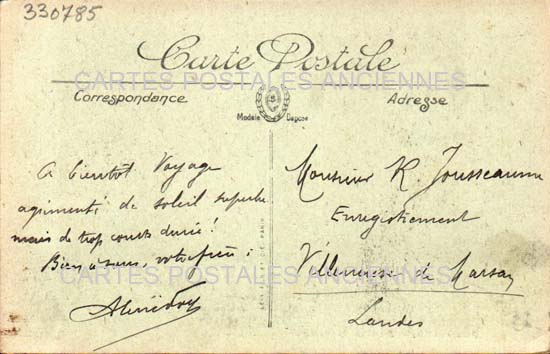 330785
Carte Postale
CARTES POSTALES ANCIENNES
Correspondance
Adresse
Modèle Déposé
A bientôt Voyage
agrimenté de soleil superbe
mais de trop courte durée!
Bien à vous, votre
Monsieur R. Jousseaume
Enregistrement
Villeneuse de Marsan
Landes
CARTES POSTALES ANCIENNES